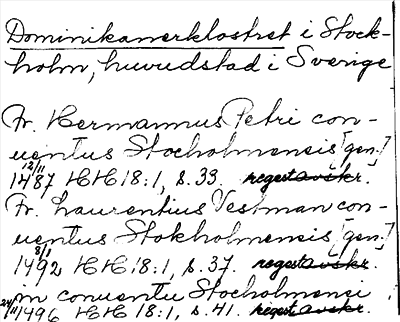 Dominikanerklostret i Stock-
holm, huvudstad i Sverige
Fr. Hermannus Petri con-
uentus Stocholmensis [gen.]
12/11
1487 HH 18:1, s. 33. regest avskr.
Fr. Laurentius Vestman con-
uentus Stokholmensis [gen.]
8/1
1492 HH 18:1, s. 37. regest avskr.
in conuentu Stocholmensi
24/11
1496 HH 18:1, s. 41. regest avskr.